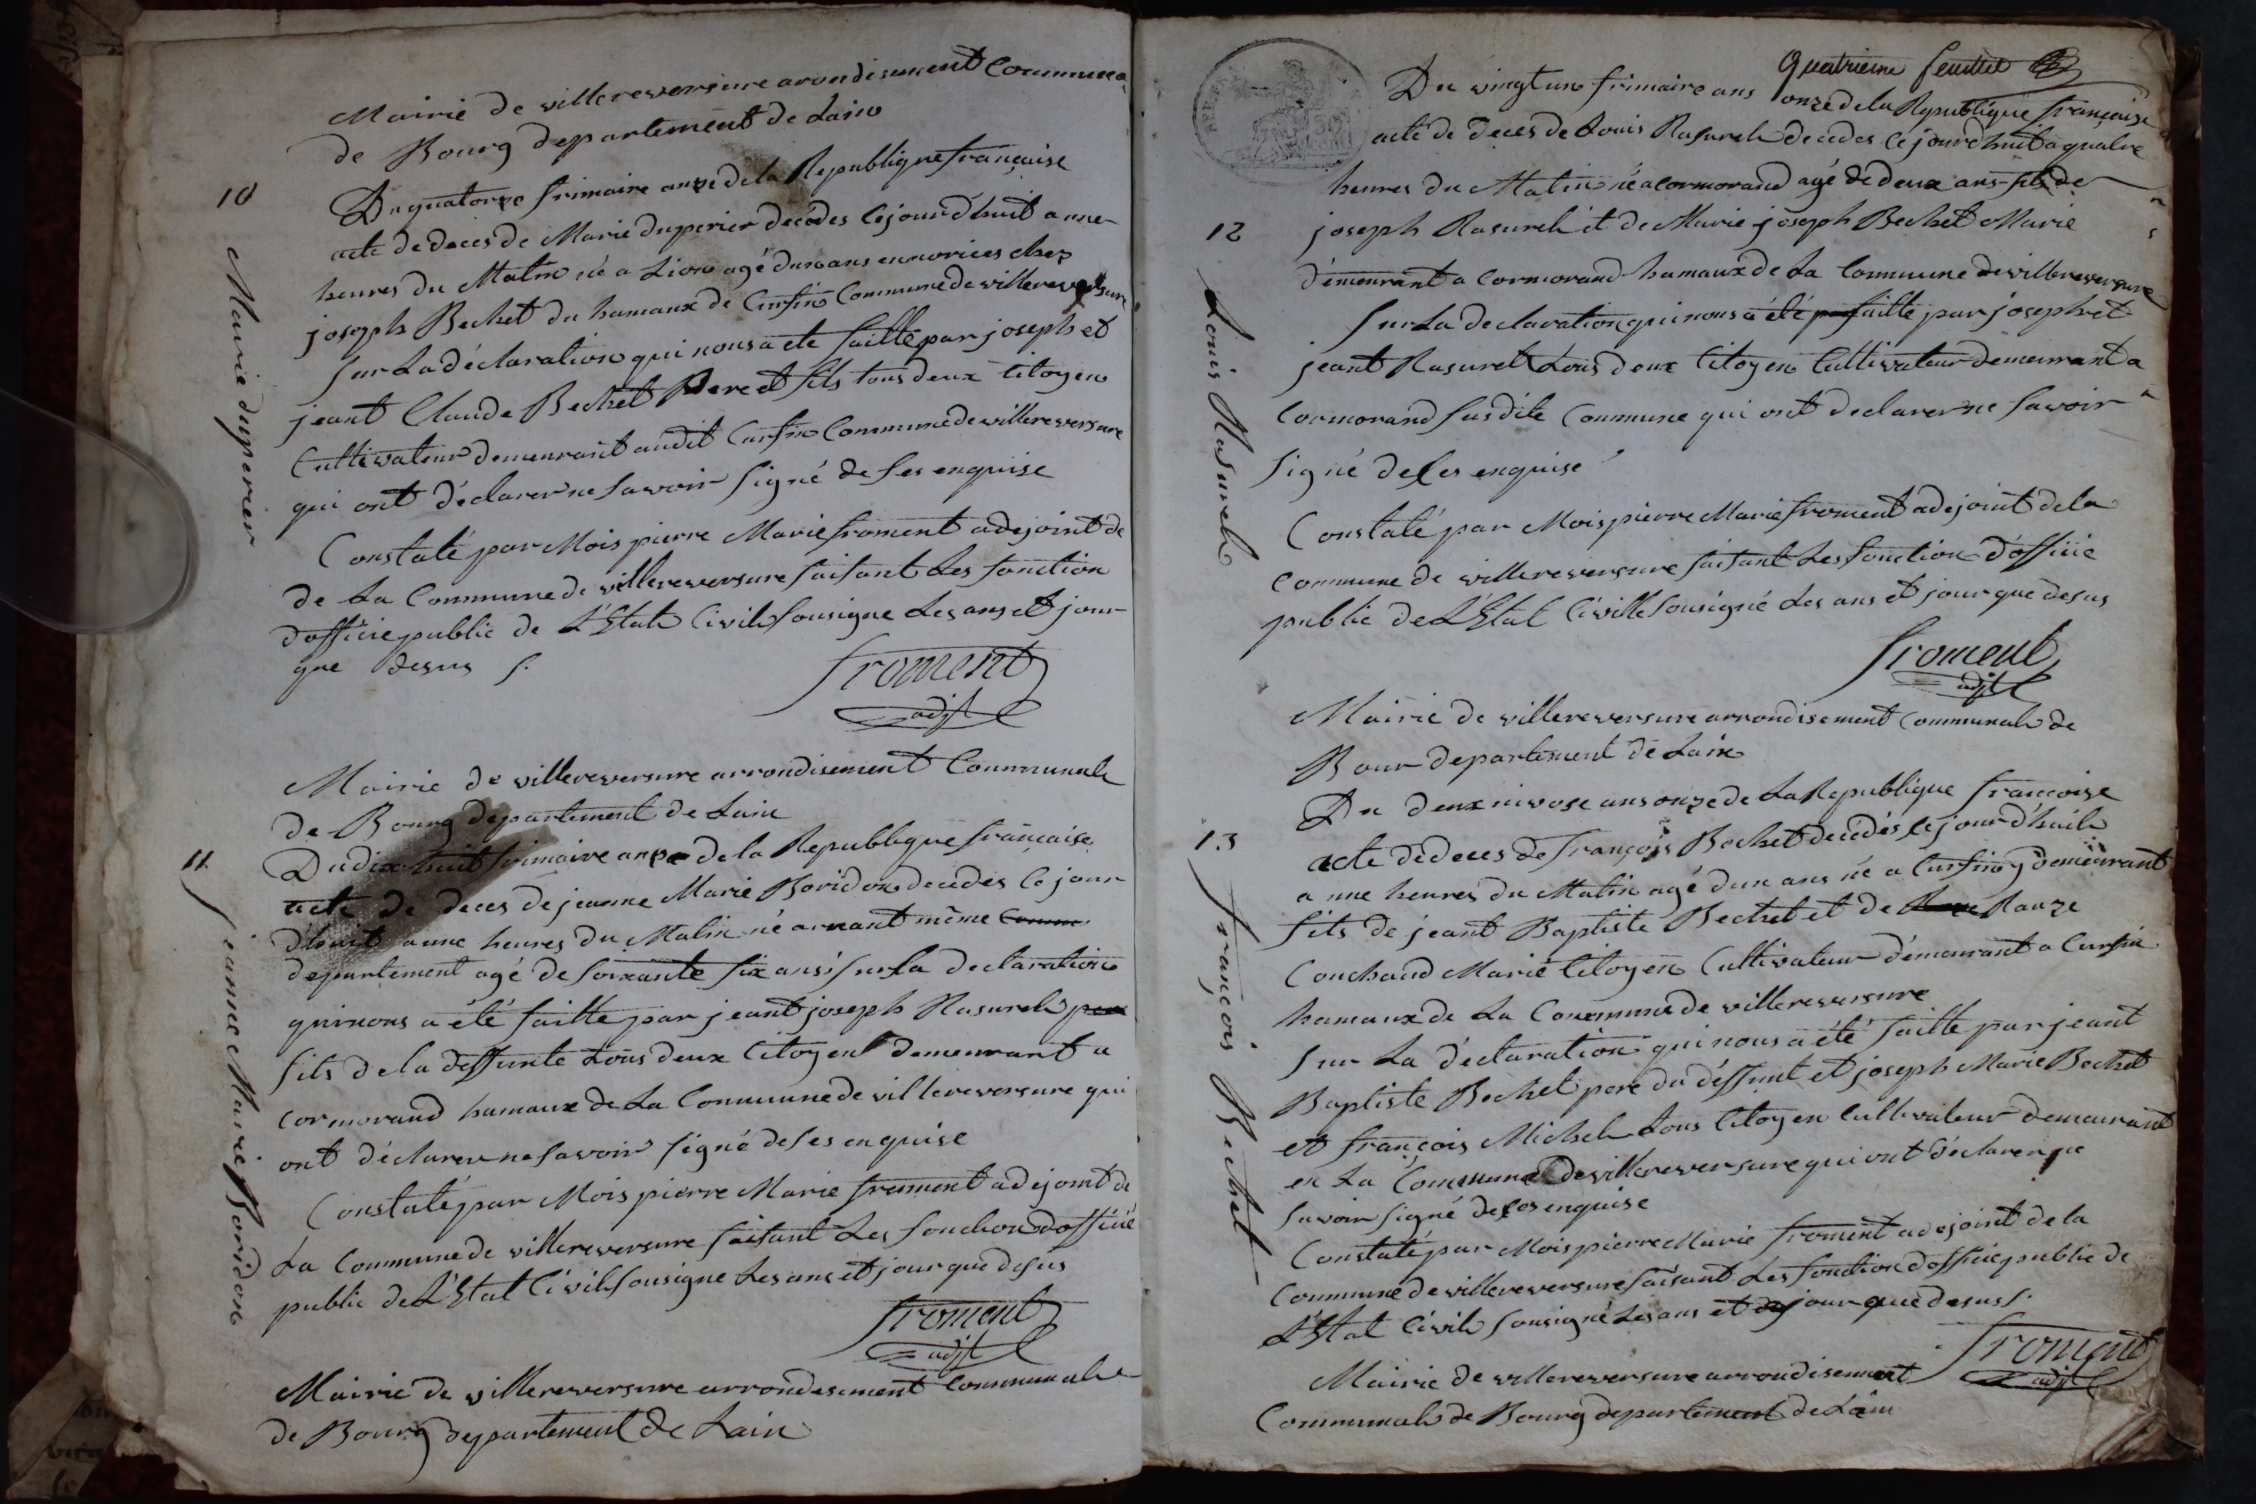 Mairie de villereversure arondisement Communa
de Bourg departement de Lain
10
Du quatorze frimaire onze de la Republique française
acte de deces de Marie duperier decédes Cejourd'huit a une
heures du Matin né a Lion agé dun ans en norices chez
joseph Bechet du hamaux de Cursin Commune de villereversure
sur La déclaration qui nous a ete faitte par joseph et
jeant Claude Bechet Pere et fils tous deux Citoyen
Cultivateur demeurant audit Cursin Commune de villereversure
qui ont déclarer ne savoir signé de ses enquise
Constaté par Mois pierre Marie froment adejoint de
de La Commune de villereversure faisant Les fonction
dofficie public de L'Etat Civil sousigne Les ans et jour
que desus s.
froment
adjt
Marie duperier
Mairie de villereversure arrondisement Communale
de Bourg departement de Lain
11
Du dix huit frimaire onze de la Republique française
acte de deces de jeanne Marie Boridon decedés Ce jour
d'huit a une heures du Matin né a nant même Comm
departement agé de soixante six ans sur La declaration
qui nous a été faitte par jeant joseph Rasurel pere
fils de la deffunte tous deux Citoyen demeurant a
Cormorand hamaux de La Commune de villereversure qui
ont déclarer ne savoir signé de ses enquise
Constaté par Mois pierre Marie froment adejoint de
La Commune de villereversure faisant Les fonction dofficié
public de L'Etat Civil sousigne Les ans et jour que desus
froment
adjt
jeanne Marie Boridon
Mairie de villereversure arrondesement Communale
de Bourg departement de Lain
Quatrieme feuillet
Du vingt un frimaire ans onze de la Republique française
acte de deces de Louis Rasurel decédes Cejourd'huit a quatre
heures du Matin né a Cormorand agé de deux ans fils de
12
joseph Rasurel et de Marie joseph Bechet Marié
démeurant a Cormorand hamaux de La Commune de villereversure
sur La declaration qui nous a été faitte par joseph et
jeant Rasurel tous deux Citoyen Cultivateur demeurant a
Cormorand susdite Commune qui ont declarer ne savoir
signé de ses enquise
Constaté par Mois pierre Marie froment adejoint de la
Commune de villereversure faisant Les fonction d'officie
public de L'Etat Civille sousigné Les ans et jour que desus
froment
adjt
Louis Rasurel
Mairie de villereversure arrondisement Communale de
Bour departement de Lain
13
Du deux nivose ans onze de La Republique francoise
acte dedeces de françois Bechet decédés Ce jourd'huit
a une heures du Matin agé dun ans né a Cursin y demeurant
fils de jeant Baptiste Bechet et de Rauze
Couchaud Marié Citoyen Cultivateur démeurant a Cursin
hamaux de La Commune de villereversure
sur La déclaration qui nous a été faitte par jeant
Baptiste Bechet pere du déffunt et joseph Marie Bechet
et françois Michel tous Citoyen Cultivateur demeurant
en La Commune de villereversure qui ont déclarer ne
savoir signé de ses enquise
Constaté par Mois pierre Marie froment adejoint de la
Commune de villereversure faisant Les fonction dofficie public de
L'Etat Civil sousigné Les ans et jour que desus s.
froment
adjt
françois Bechet
Mairie de villereversure arrondisement
Communale de Bourg departement de Lain